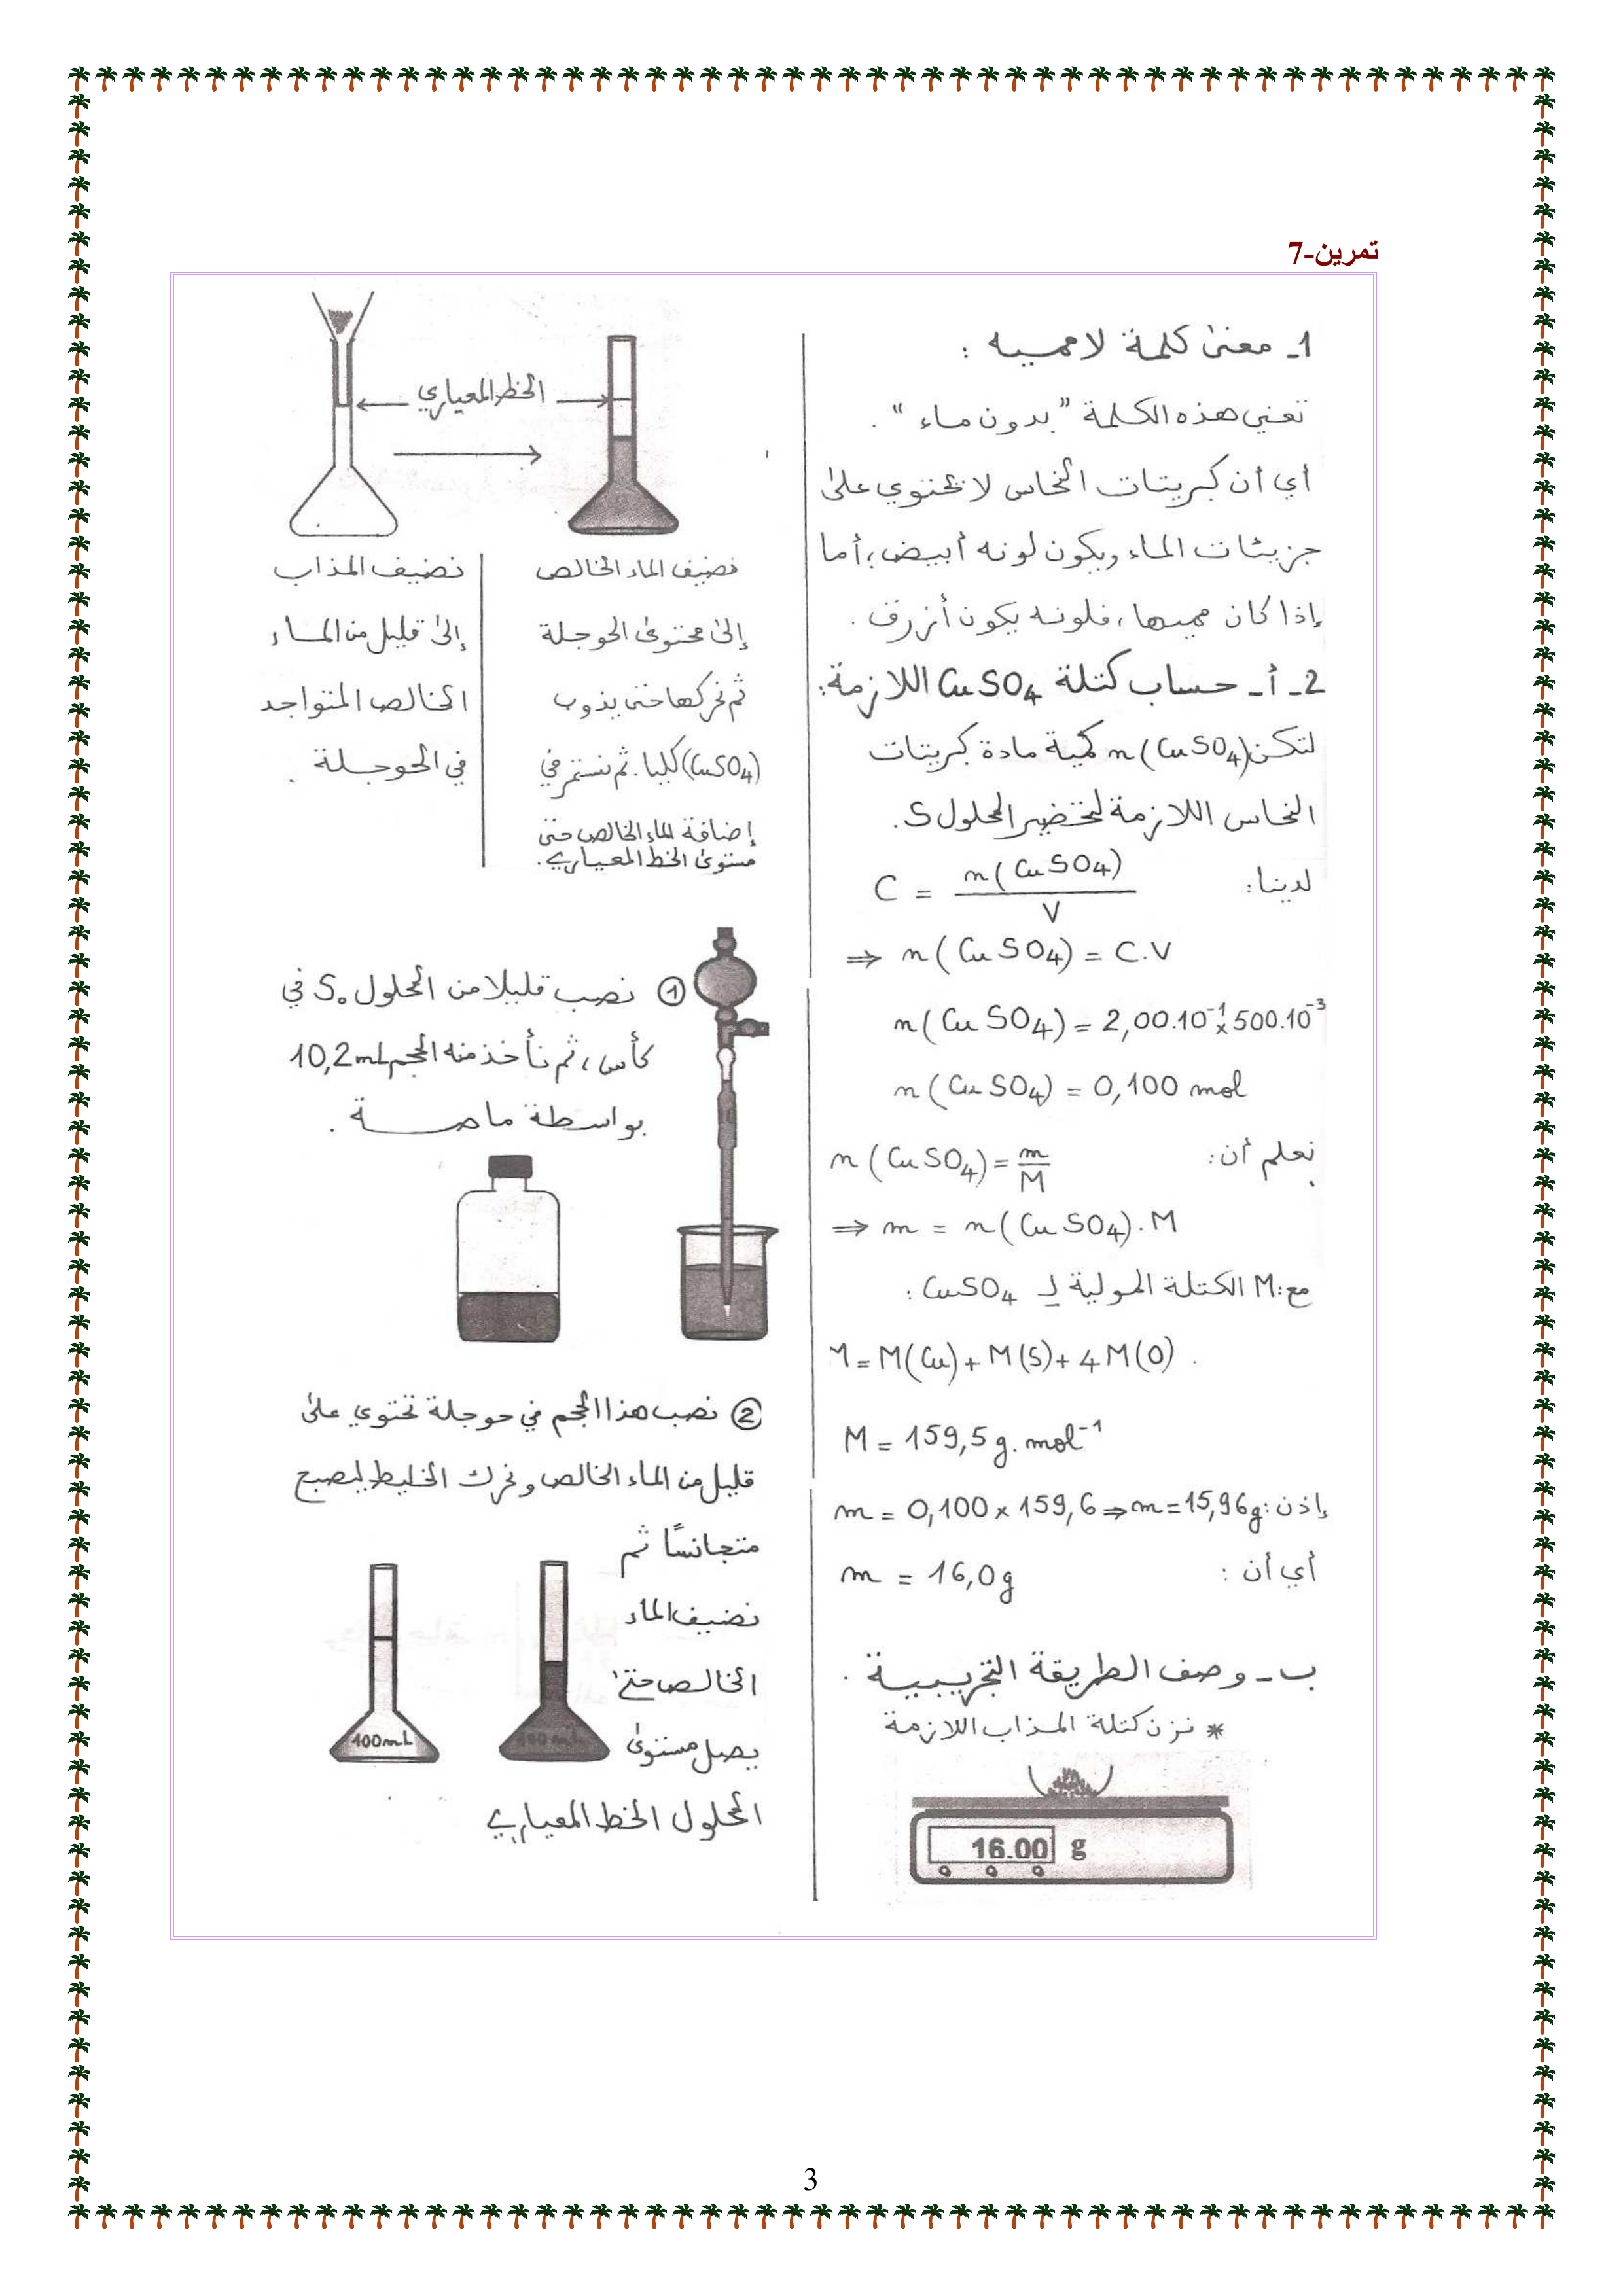 تمرين-7
1ـ معنى كلمة لا مميه :
تعني هذه الكلمة "بدون ماء" .
أي أن كبريتات النحاس لا تحتوي على
جزيئات الماء ويكون لونه أبيض، أما
إذا كان مميها، فلونه يكون أزرق .
2ـ أـ حساب كتلة CuSO4 اللازمة:
لتكن n(CuSO4) كمية مادة كبريتات
النحاس اللازمة لتحضير المحلول S.
لدينا: C = n(CuSO4) / V
⇒ n(CuSO4) = C.V
n(CuSO4) = 2,00.10⁻¹ × 500.10⁻³
n(CuSO4) = 0,100 mol
نعلم أن: n(CuSO4) = m / M
⇒ m = n(CuSO4).M
مع: M الكتلة المولية لـ CuSO4 :
M = M(Cu) + M(S) + 4M(O) .
M = 159,5 g.mol⁻¹
إذن: m = 0,100 × 159,6 ⇒ m = 15,96g
أي أن : m = 16,0g
بـ ـ وصف الطريقة التجريبية .
* نزن كتلة المذاب اللازمة
16.00 g
الخط المعياري
نضيف المذاب
إلى قليل من الماء
الخالص المتواجد
في الحوجلة .
نضيف الماء الخالص
إلى محتوى الحوجلة
ثم نحركها حتى يذوب
(CuSO4) كليا. ثم نستمر في
إضافة الماء الخالص حتى
مستوى الخط المعياري.
① نصب قليلا من المحلول S₀ في
كأس، ثم نأخذ منه الحجم 10,2mL
بواسطة ماصة .
② نصب هذا الحجم في حوجلة تحتوي على
قليل من الماء الخالص ونحرك الخليط ليصبح
متجانسًا ثم
نضيف الماء
الخالص حتى
يصل مستوى
المحلول الخط المعياري
100mL
100mL
3